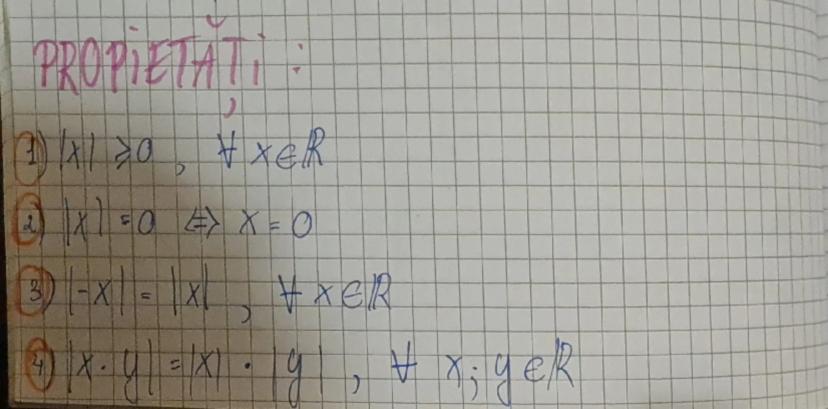 PROPiETĂȚi :
1) |x| ⩾ 0 , ∀ x ∈ ℝ
2) |x| = 0 ⇔ x = 0
3) |-x| = |x| , ∀ x ∈ ℝ
4) |x · y| = |x| · |y| , ∀ x ; y ∈ ℝ